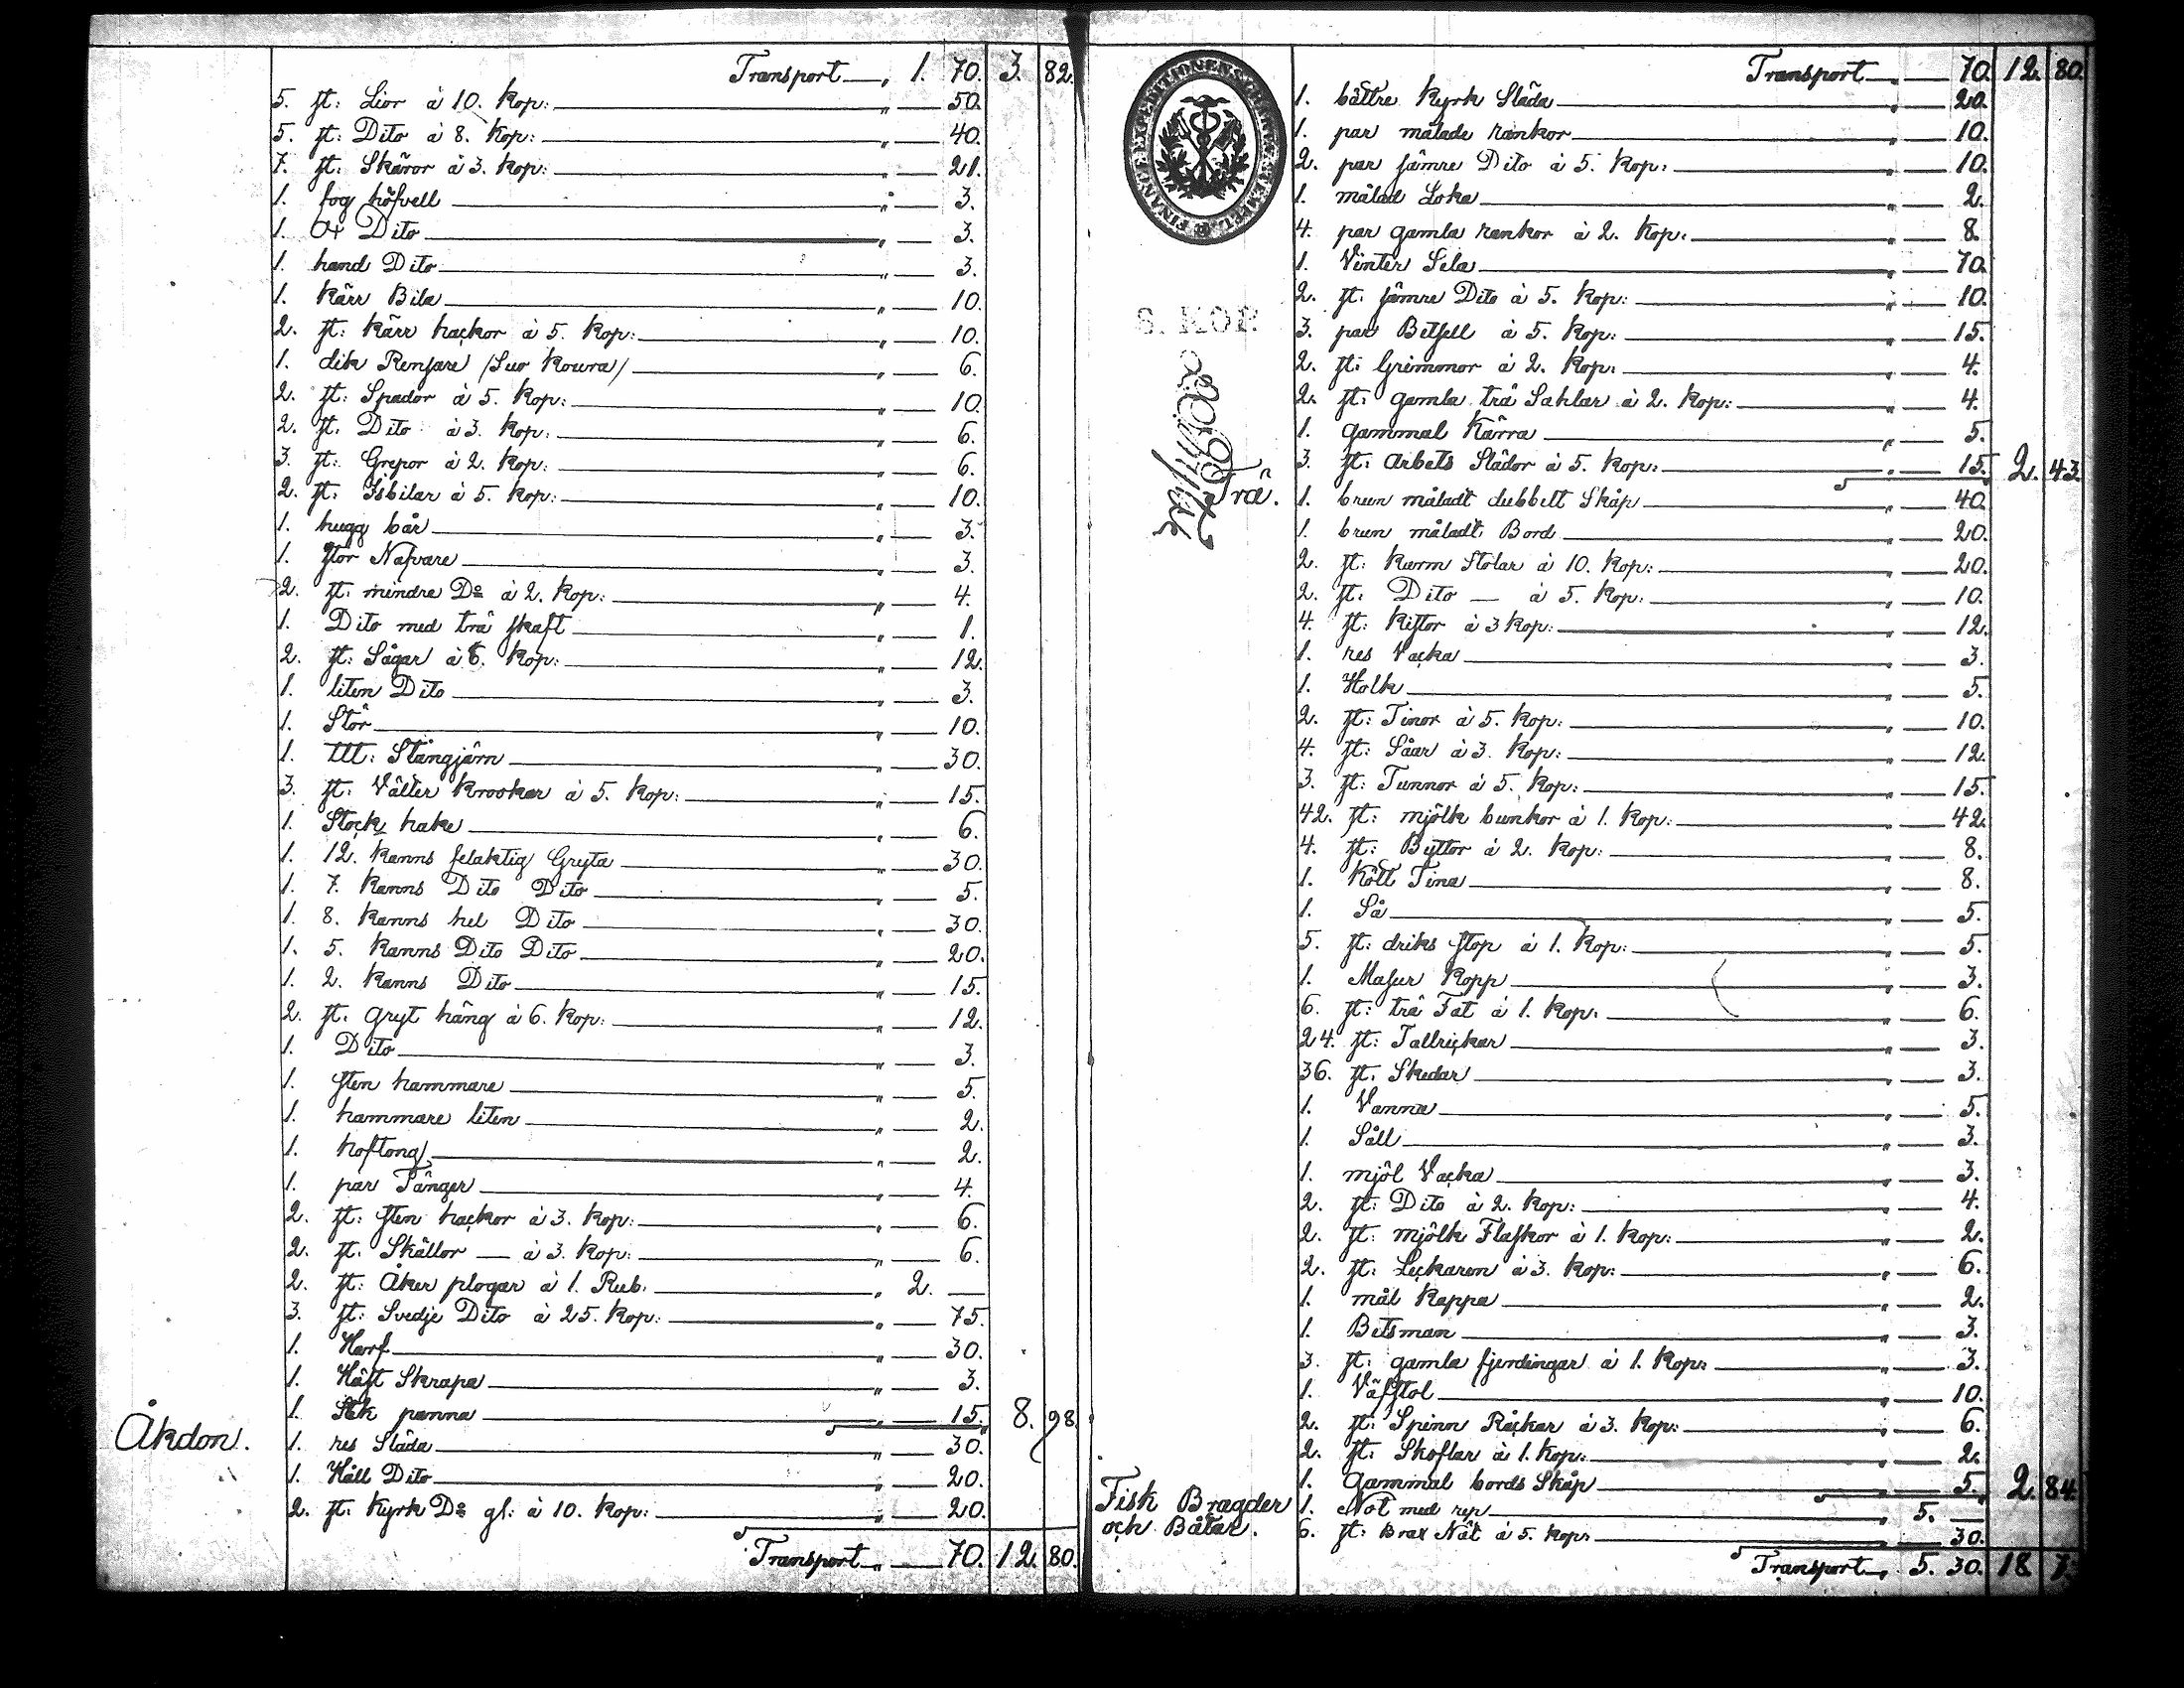 Transport „ 1. 70. 3. 82.
5. st: Lior à 10. Kop: „ 50.
5. st: Dito à 8. Kop: „ 40.
7. st: Skäror à 3. Kop: „ 21.
1. fog höfvell „ 3.
1. Ox Dito „ 3.
1. hand Dito „ 3.
1. Kärr Bila „ 10.
2. st: Kärr hackor à 5. Kop: „ 10.
1. dik Rensare /Suo Koura/ „ 6.
2. st: Spador à 5. Kop: „ 10.
2. st: Dito à 3. Kop: „ 6.
3. st: Grepor à 2. Kop: „ 6.
2. st: Isbilar à 5. Kop: „ 10.
1. hugg bår „ 3.
1. stor Nafvare „ 3.
2. st: mindre Do à 2. Kop: „ 4.
1. Dito med trä skaft „ 1.
2. st: Sågar à 6. Kop: „ 12.
1. liten Dito „ 3.
1. Stör „ 10.
1. ttt: Stångjärn „ 30.
3. st: Välter Krookar à 5. Kop: „ 15.
1. Stock hake „ 6.
1. 12. Kanns felaktig Gryta „ 30.
1. 7. Kanns Dito Dito „ 5.
1. 8. Kanns hel Dito „ 30.
1. 5. Kanns Dito Dito „ 20.
1. 2. Kanns Dito „ 15.
2. st: Gryt häng à 6. Kop: „ 12.
1. Dito „ 3.
1. sten hammare „ 5.
1. hammare liten „ 2.
1. hoftong „ 2.
1. par Tänger „ 4.
2. st: sten hackor à 3. Kop: „ 6.
2. st: Skällor — à 3. Kop: „ 6.
2. st: Åker plogar à 1. Rub. „ 2. —
3. st: Svedje Dito à 25. Kop: „ 75.
1. Harf „ 30.
1. Häst Skrapa „ 3.
1. Stek panna „ 15. 8. 98.
Åkdon. 1. res Släda „ 30.
1. Håll Dito „ 20.
2. st: Kyrk Do gl: à 10. Kop: „ 20.
Transport „ 70. 12. 80.
Transport „ 70. 12. 80.
FINANS EXPEDITIONENS
8. KOP.
1. bättre Kyrk Släda „ 20.
1. par målade rankor „ 10.
2. par sämre Dito à 5. Kop: „ 10.
1. målad Loka „ 2.
4. par gamla rankor à 2. Kop. „ 8.
1. Vinter Sela „ 70.
2. st: sämre Dito à 5. Kop: „ 10.
3. par Betsell à 5. Kop: „ 15.
2. st: Grimmor à 2. Kop. „ 4.
2. st: gamla trä Sahlar à 2. Kop: „ 4.
1. gammal Kärra „ 5.
3. st: Arbets Slädor à 5. Kop: „ 15. 2. 43.
Trä. 1. brun måladt dubbelt Skåp „ 40.
1. brun måladt Bord „ 20.
2. st: Karm Stolar à 10. Kop: „ 20.
2. st: Dito — à 5. Kop: „ 10.
4. st: Kistor à 3 Kop: „ 12.
1. res Vacka „ 3.
1. Holk „ 5.
2. st: Tinor à 5. Kop: „ 10.
4. st: Såar à 3. Kop: „ 12.
3. st: Tunnor à 5. Kop: „ 15.
42. st: mjölk bunkor à 1. Kop: „ 42.
4. st: Byttor à 2. Kop: „ 8.
1. Kött Tina „ 8.
1. Så „ 5.
5. st: driks stop à 1. Kop: „ 5.
1. Masur Kopp „ 3.
6. st: trä Fat à 1. Kop. „ 6.
24. st: Tallrickar „ 3.
36. st: Skedar „ 3.
1. Vanna „ 5.
1. Såll „ 3.
1. mjöl Vacka „ 3.
2. st: Dito à 2. Kop: „ 4.
2. st: mjölk Flaskor à 1. Kop: „ 2.
2. st: Leckaren à 3. Kop: „ 6.
1. mål Kappa „ 2.
1. Betsman „ 3.
3. st: gamla fjerdingar à 1. Kop: „ 3.
1. Väfstol „ 10.
2. st: Spinn Råckar à 3. Kop: „ 6.
2. st: Skoflar à 1. Kop: „ 2.
1. gammal bords Skåp „ 5. 2. 84.
Fisk Bragder och Båtar. 1. Not med rep „ 5. —
6. st: Brax Nät à 5. Kop: „ 30.
Transport „ 5. 30. 18. 7.